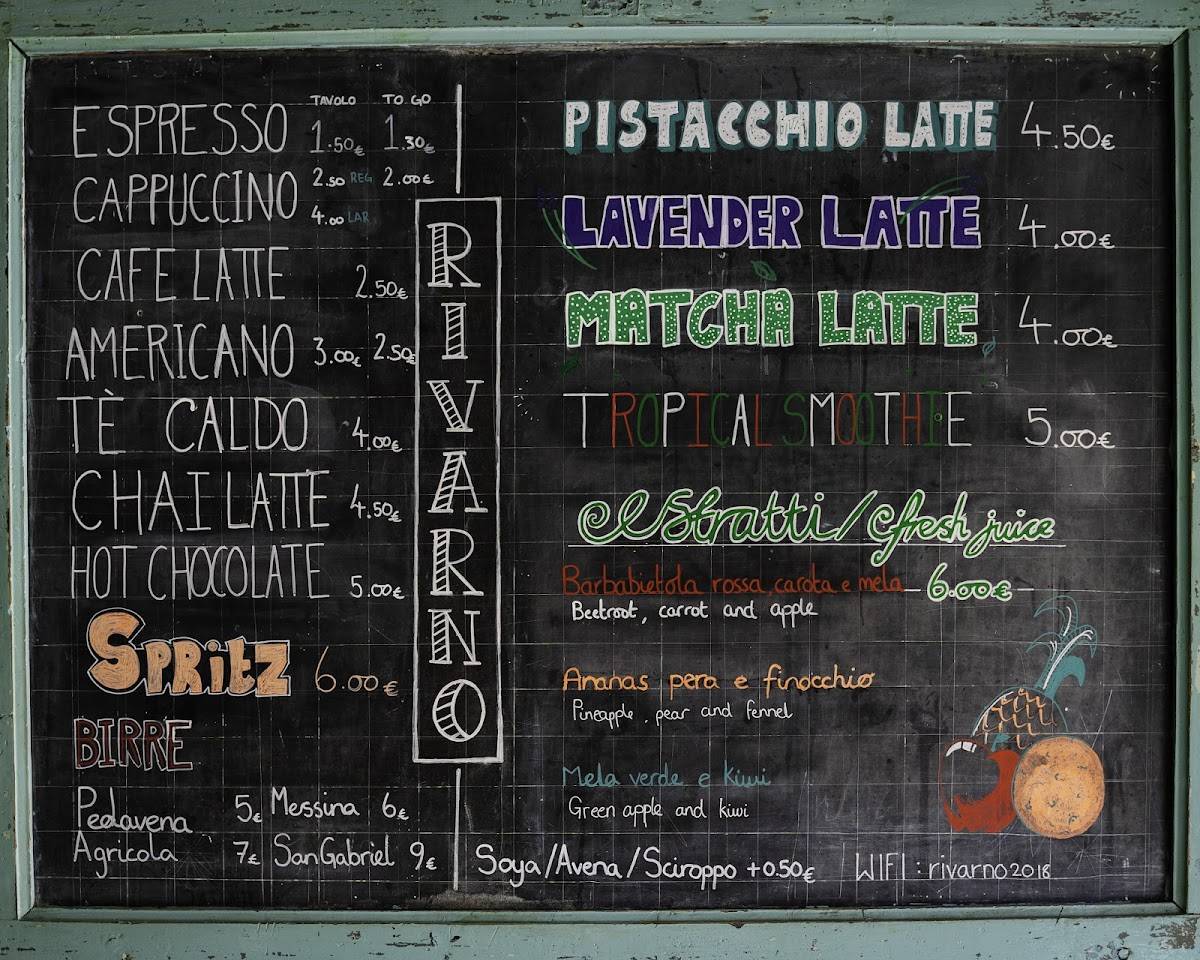 TAVOLO TO GO
ESPRESSO 1.50€ 1.30€
CAPPUCCINO 2.50 REG 2.00€
4.00 LAR
CAFE LATTE 2.50€
AMERICANO 3.00€ 2.50€
TÈ CALDO 4.00€
CHAI LATTE 4.50€
HOT CHOCOLATE 5.00€
SPRitZ 6.00€
BIRRE
Pedavena 5€ Messina 6€
Agricola 7€ SanGabriel 9€
RIVARNO
PISTACCHIO LATTE 4.50€
LAVENDER LATTE 4.00€
MATCHA LATTE 4.00€
TROPICAL SMOOTHIE 5.00€
estratti/fresh juice
Barbabietola rossa, carota e mela 6.00€
Beetroot, carrot and apple
Ananas pera e finocchio
Pineapple, pear and fennel
Mela verde e kiwi
Green apple and kiwi
Soya/Avena/Sciroppo +0.50€ WIFI: rivarno2018